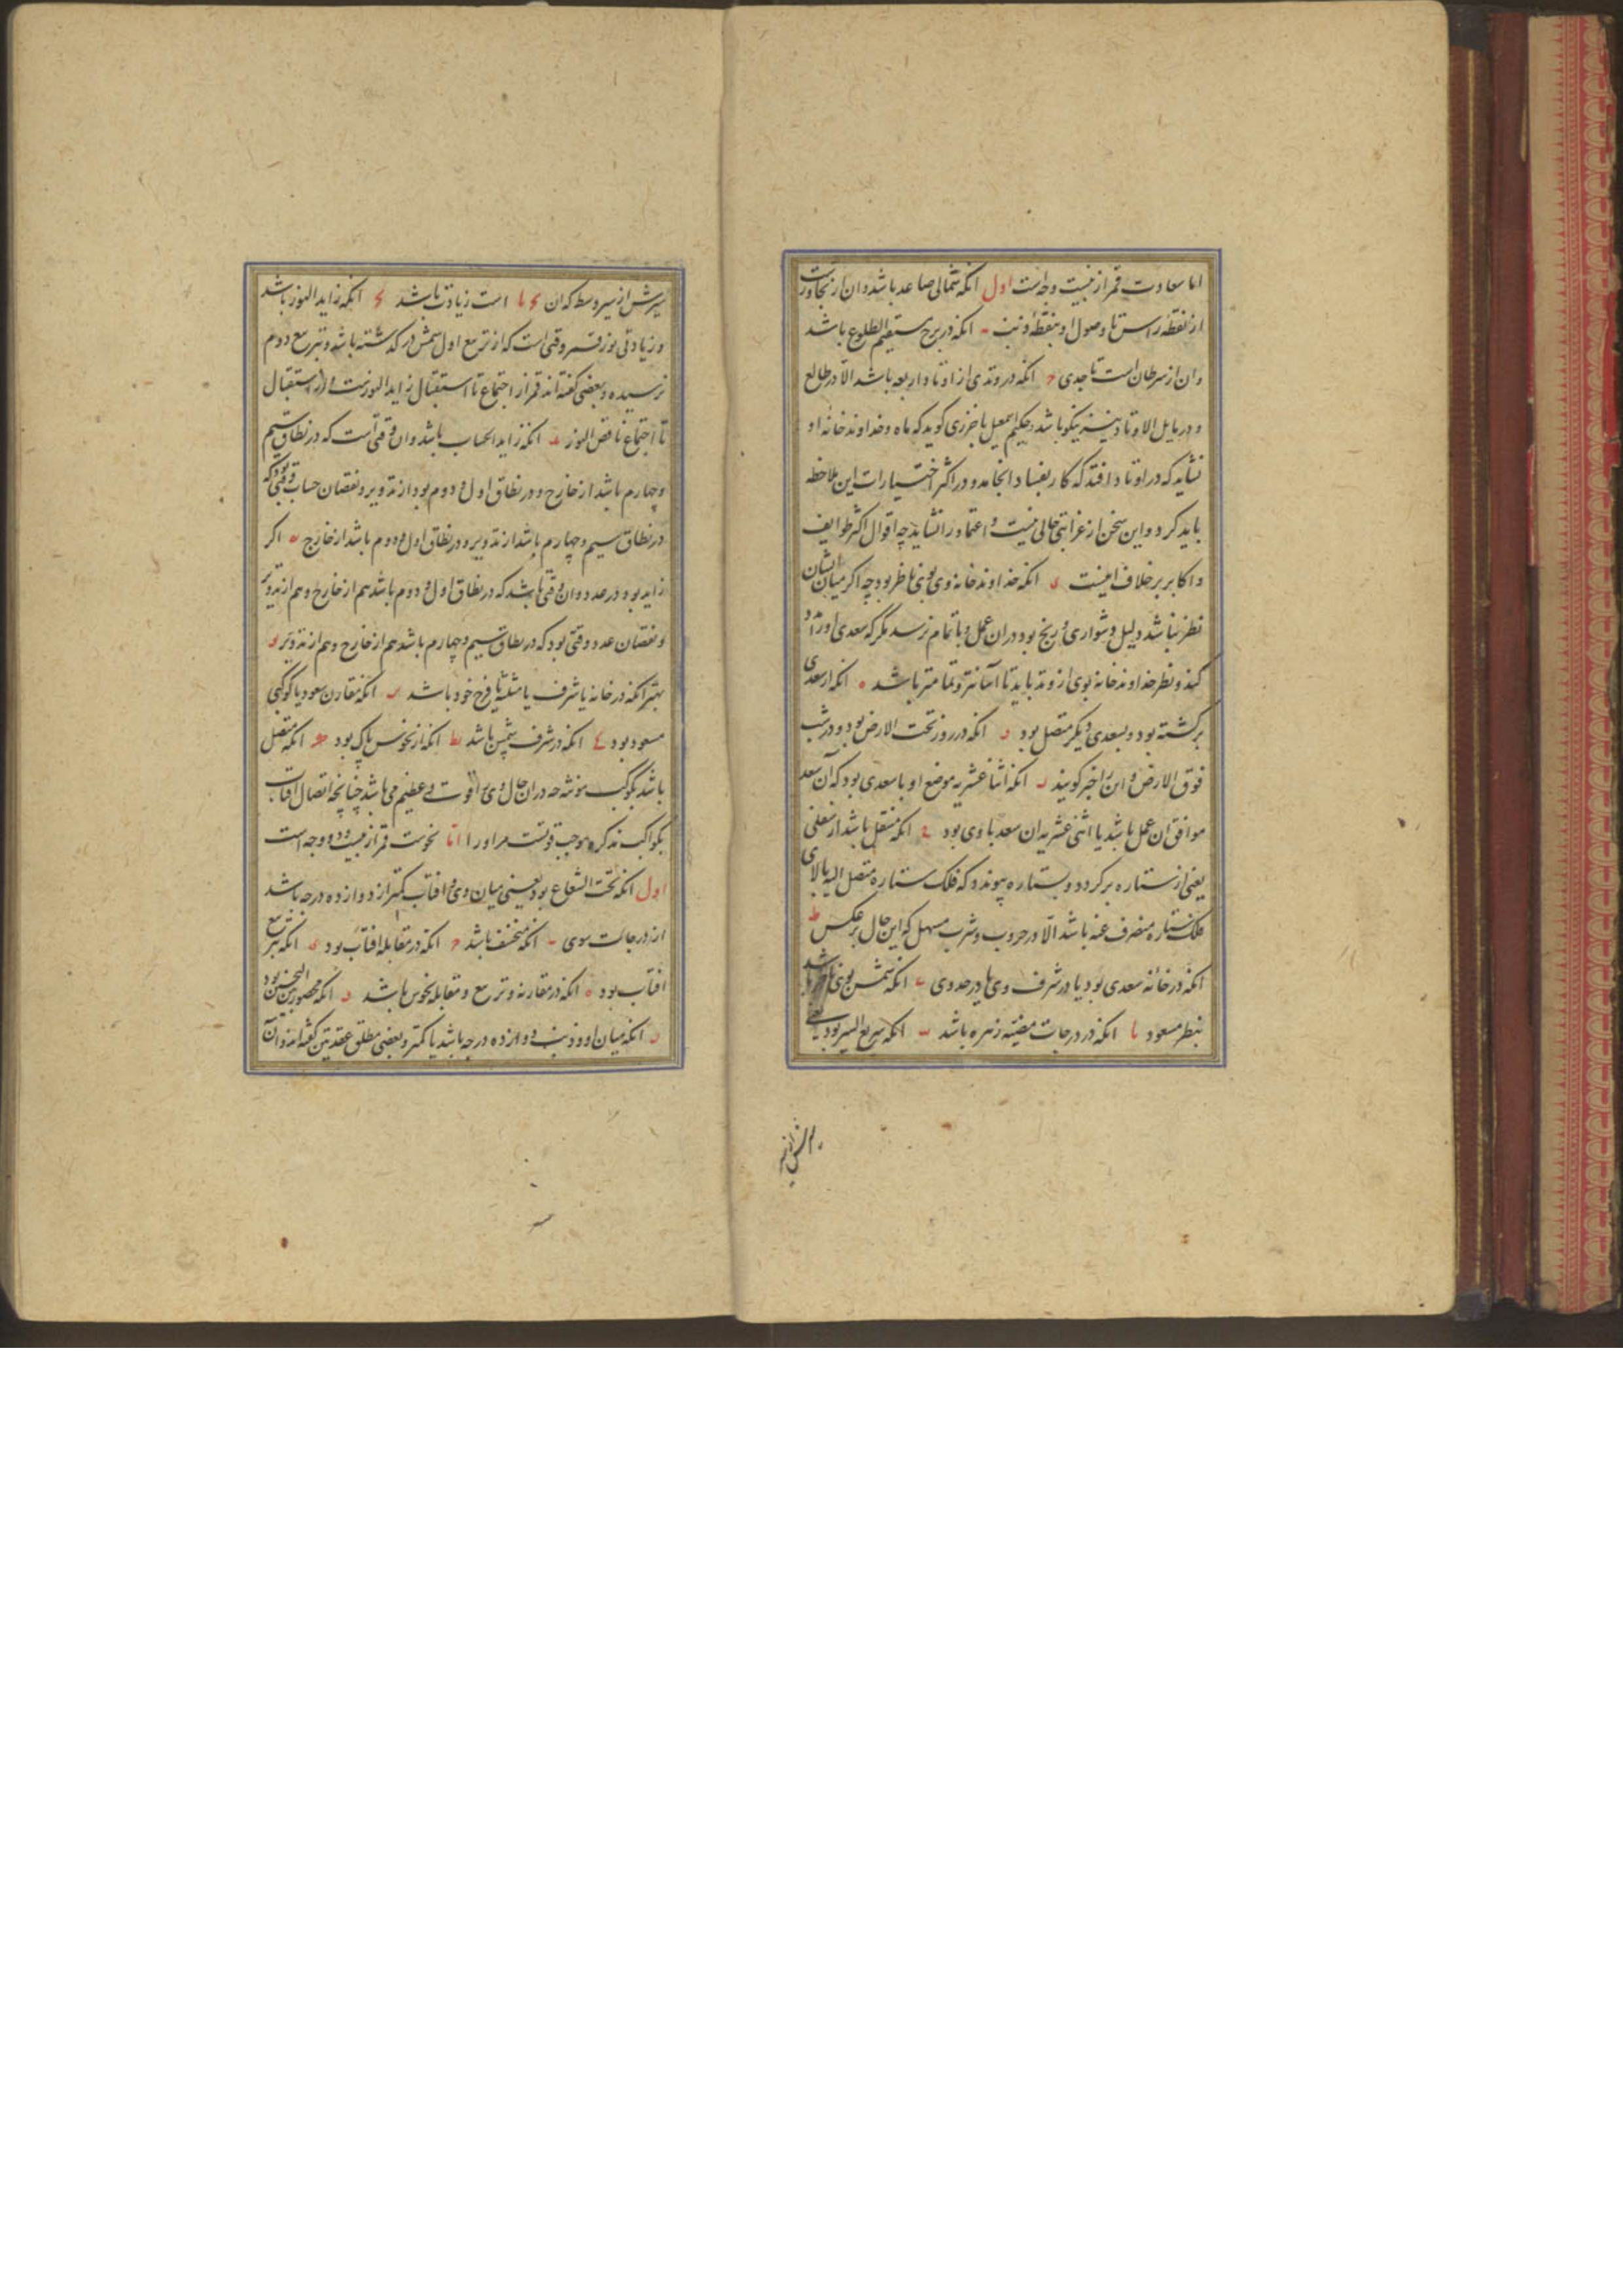 اما سعادت قمر از بیست وجه است اول انکه شمالی صاعد باشد وان از تجاوزست
از نقطه راس تا وصول او بنقطه ذنب انکه در برج مستقیم الطلوع باشد
وان از سرطان است تا جدی ح انکه در وتدی از اوتاد اربعه باشد الا در طالع
و در مایل الاوتاد نیز نیکو باشد حکیم اسمعیل باخرزی کوید که ماه و خداوند خانه او
نشاید که در اوتاد افتد که کار بفساد انجامد و در اکثر اختیارات این ملاحظه
باید کرد و این سخن از غرابتی خالی نیست و اعتماد را نشاید چه اقوال اکثر طوایف
و اکابر بر خلاف اینست د انکه خداوند خانه وی بوی ناظر بود چه اکر میان ایشان
نظر نباشد دلیل دشواری و رنج بود در ان عمل و باتمام نرسد مکر که سعدی او را مدد
کند و نظر خداوند خانه بوی از وتد باید تا اسانتر و تمامتر باشد ه انکه از سعدی
برکشته بود و بسعدی دیکر متصل بود و انکه در روز تحت الارض بود و در شب
فوق الارض و این را خیر کویند ر انکه اثنا عشریه موضع او با سعدی بود که آن سعد
موافق ان عمل باشد یا اثنی عشریه ان سعد با وی بود ح انکه منتقل باشد از سفلی
یعنی از ستاره برکردد و بستاره پیوندد که فلک ستاره متصل الیه بالای
فلک ستاره منصرف عنه باشد الا در حروب و شرب مسهل که این حال بر عکس ط
انکه در خانه سعدی بود یا در شرف وی یا در حد وی ی انکه شمس بوی ناظر باشد
بنظر مسعود یا انکه در درجات مضیئه زهره باشد یب انکه سریع السیر بود یعنی
سیرش از سیر وسط که ان است زیادت باشد انکه زاید النور باشد
و زیادتی نور قمر وقتی است که از تربیع اول شمس در کذشته باشد و بتربیع دوم
نرسیده و بعضی کفته اند قمر از اجتماع تا استقبال زاید النورست و از استقبال
تا اجتماع ناقص النور ید انکه زاید الحساب باشد وان وقتی است که در نطاق سیم
و چهارم باشد از خارج و در نطاق اول و دوم بود از تدویر و نقصان حساب وقتی بود که
در نطاق سیم و چهارم باشد از تدویر و در نطاق اول و دوم باشد از خارج یه اکر
زاید بود در عدد وان وقتی باشد که در نطاق اول و دوم باشد هم از خارج و هم از تدویر
و نقصان عدد وقتی بود که در نطاق سیم و چهارم باشد هم از خارج و هم از تدویر یو
بهتر انکه در خانه یا شرف یا مثلثه یا فرح خود باشد یر انکه مقارن سعود یا کوکبی
مسعود بود یح انکه در شرف شمس باشد یط انکه از نحوس پاک بود ک انکه متصل
باشد بکوکب مونثه چه در ان حال وی را قوت عظیم می باشد چنانچه اتصال افتاب
بکواکب مذکره موجب قوتست مر او را اما نحوست قمر از بیست و دو وجه است
اول انکه تحت الشعاع بود یعنی میان وی و افتاب کمتر از دوازده درجه باشد
از درجات سوی ب انکه منخسف باشد ح انکه در مقابله افتاب بود د انکه بتربیع
افتاب بود ه انکه در مقارنه و تربیع و مقابله نحوس باشد و انکه محصور بین النحسین بود
ر انکه میان او و ذنب دوازده درجه باشد یا کمتر و بعضی مطلق عقدتین کفته اند وآن